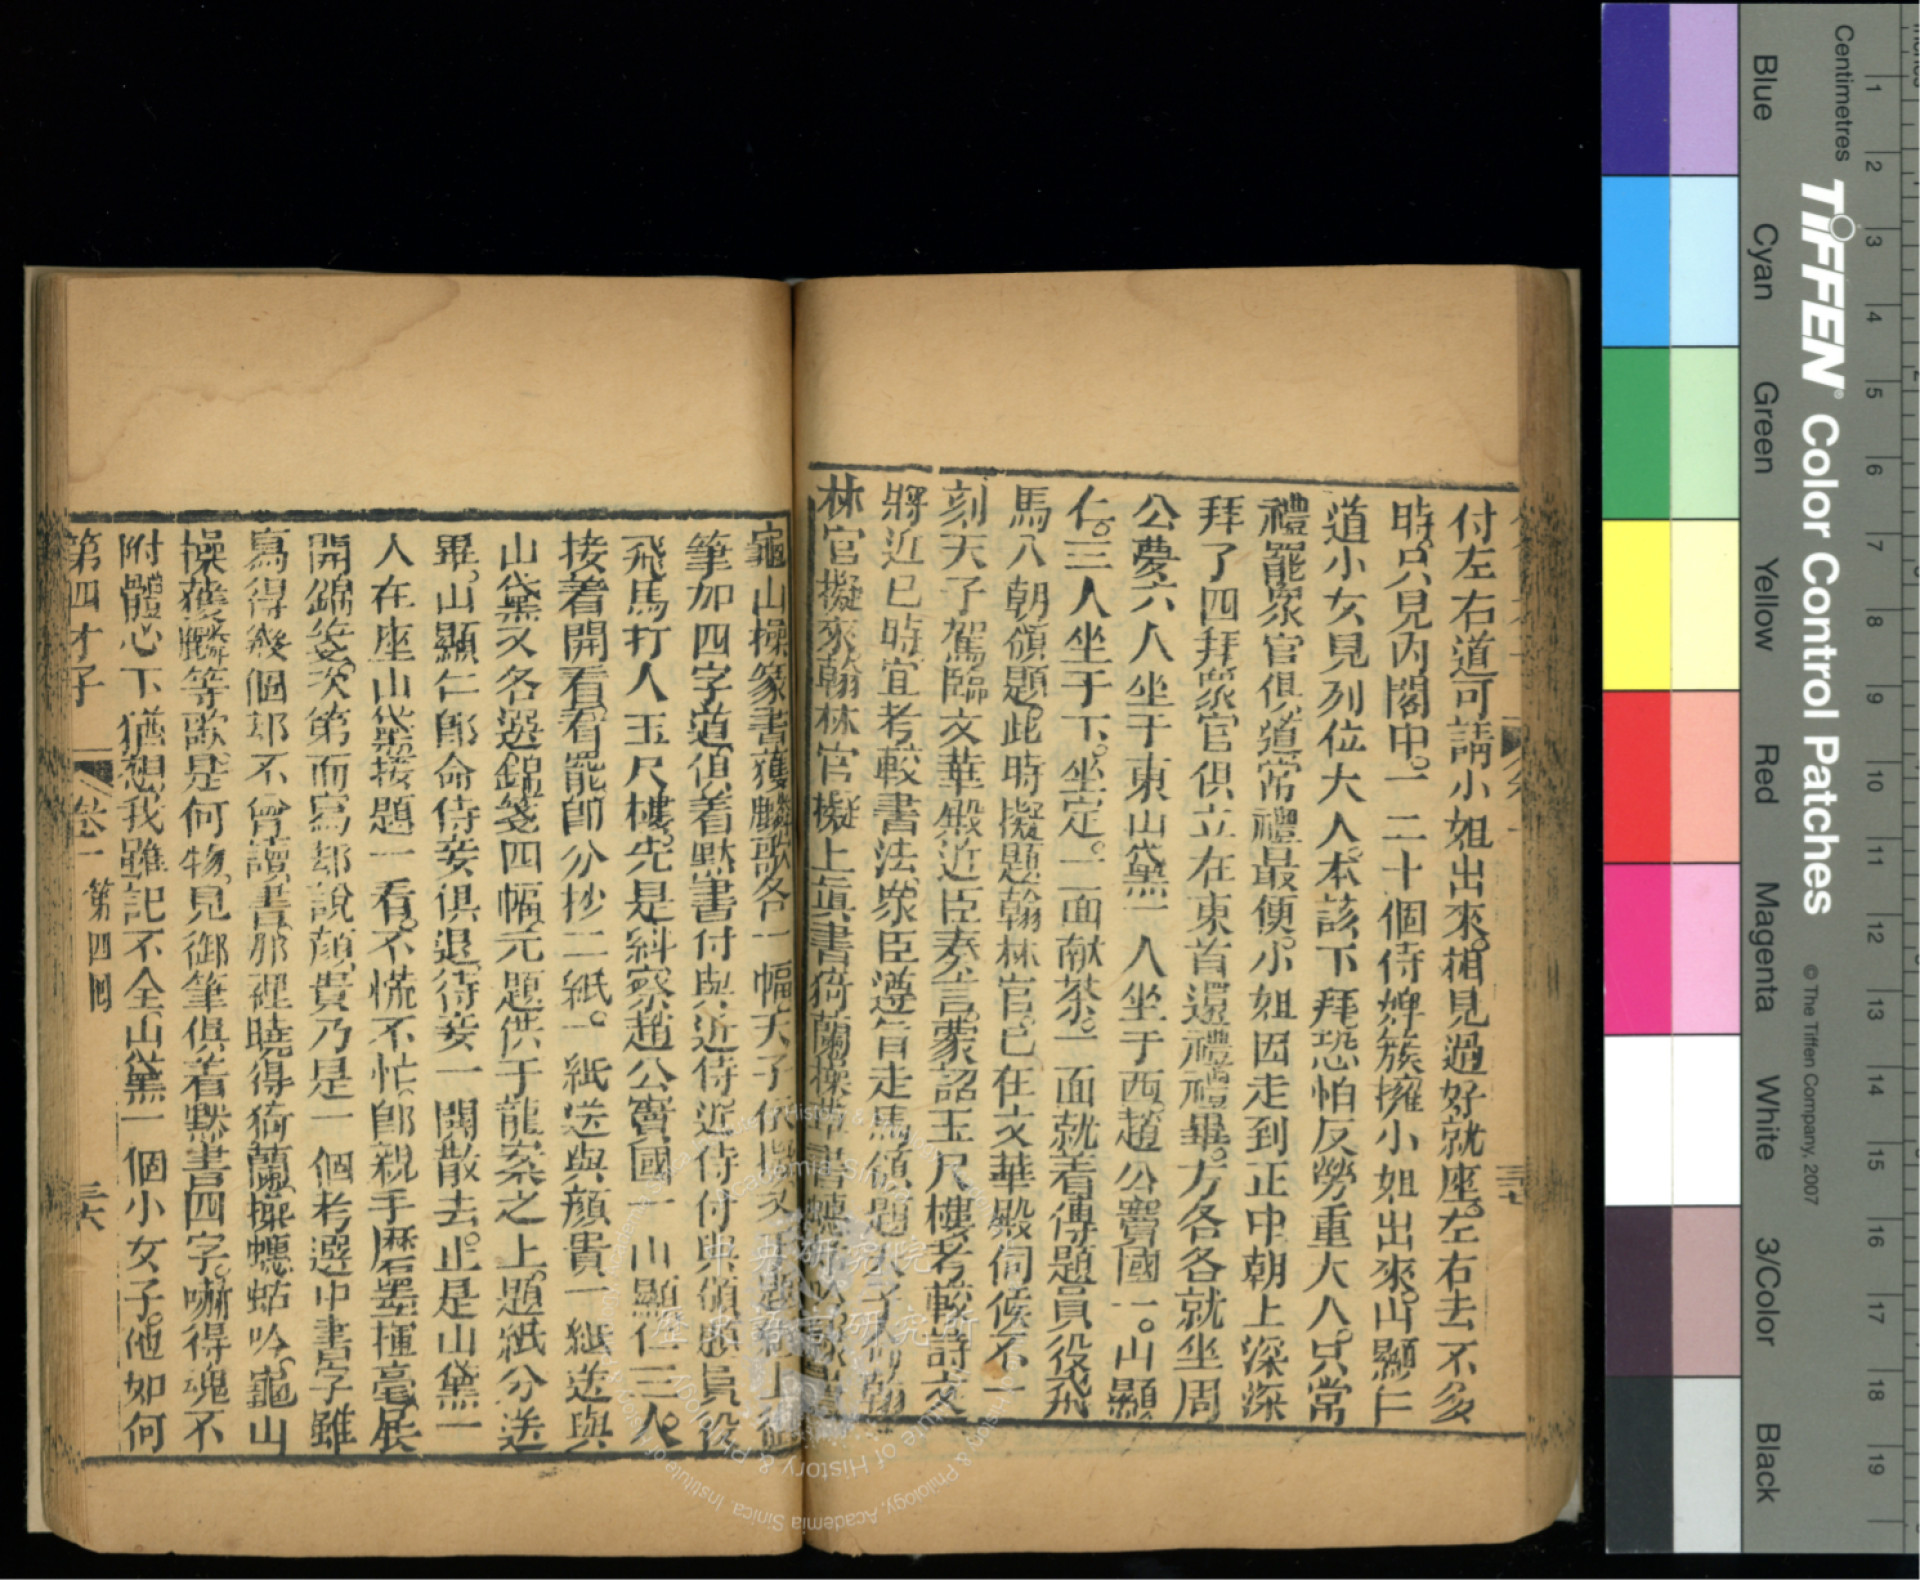 付左右道可請小姐出來。相見過好就座。左右去不多
時。只見內閣中。一二十個侍婢簇擁小姐出來。山顯仁
道小女見列位大人。本該下拜恐怕反勞重大人。只常
禮罷。衆官俱道常禮最便。小姐因走到正中朝上深深
拜了四拜。衆官俱立在東首還禮。禮畢。方各各就坐周
公夢六人坐于東山黛一人坐于西。趙公竇國一。山顯
仁。三人坐于下。坐定。一面献茶。一面就着傳題員役飛
馬入朝領題。此時擬題翰林官。已在文華殿伺候。不一
刻天子駕臨文華殿近臣奏言。蒙詔玉尺樓考較詩文
將近巳時宜考較書法。衆臣遵旨走馬領題。天子命翰
林官擬來。翰林官擬上眞書猗蘭操草書蟪蛄吟
龜山操篆書獲麟歌各一幅。天子依
筆加四字道。俱着默書付與近侍。近侍付與領題員役
飛馬打入玉尺樓。先是糾察趙公竇國一山顯仁三人。
接着開看。看罷卽分抄二紙。一紙送與顔貴一紙送與
山黛。又各選錦箋四幅。元題供于龍案之上。題紙分送
畢。山顯仁卽命侍妾俱退。侍妾一閧散去。止是山黛一
人在座。山黛接題一看。不慌不忙。卽親手磨墨揮毫。展
開錦箋。次第而寫。却說顔貴乃是一個考選中書。字雖
寫得幾個却不曾讀書。那裡曉得猗蘭操蟪蛄吟。龜山
操獲麟等歌。是何物。見御筆俱着默書四字。嚇得魂不
附體。心下猶想。我雖記不全。山黛一個小女子。他如何
第四才子 卷一 第四囘 三六
Blue Cyan Green Yellow Red Magenta White 3/Color Black
TIFFEN® Color Control Patches © The Tiffen Company, 2007
Centimetres 1 2 3 4 5 6 7 8 9 10 11 12 13 14 15 16 17 18 19